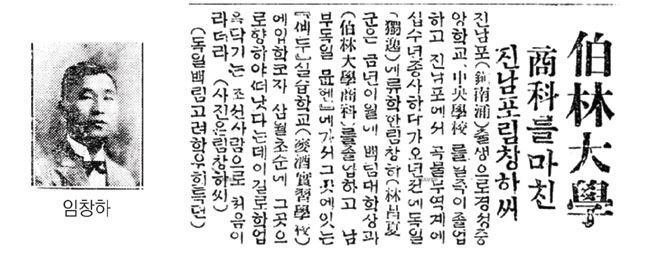 伯林大學
商科를마친
진남포림창하씨
진남포(鎭南浦)출생으로경성중
앙학교(中央學校)를일즉이졸업
하고 진남포에서 곡물무역계에
십수년종사하다가오년전에독일
(獨逸)에류학한림창하(林昌夏)
군은 금년이월에 백림대학상과
(伯林大學商科)를졸업하고 남
부독일 뮨헨에가서그곳에잇는
『삐루』실습학교(麥酒實習學校)
에입학코자 삼월초순에 그곳으
로향하야떠낫다는데이길로학업
을닥기는 조선사람으로 처음이
라더라 (사진은림창하씨)
(독일백림고려학우회특뎐)
임창하